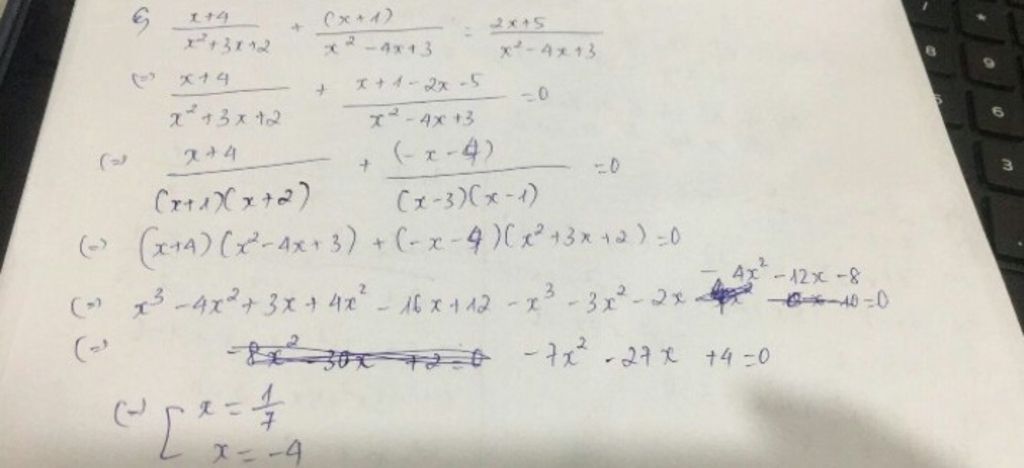 c) \frac{x+4}{x^2+3x+2} + \frac{(x+1)}{x^2-4x+3} = \frac{2x+5}{x^2-4x+3}
(=) \frac{x+4}{x^2+3x+2} + \frac{x+1-2x-5}{x^2-4x+3} = 0
(=) \frac{x+4}{(x+1)(x+2)} + \frac{(-x-4)}{(x-3)(x-1)} = 0
(=) (x+4)(x^2-4x+3) + (-x-4)(x^2+3x+2) = 0
(=) x^3 - 4x^2 + 3x + 4x^2 - 16x + 12 - x^3 - 3x^2 - 2x - 4x^2 - 12x - 8 = 0
(=) -7x^2 - 27x + 4 = 0
(=) [ x = \frac{1}{7}
x = -4